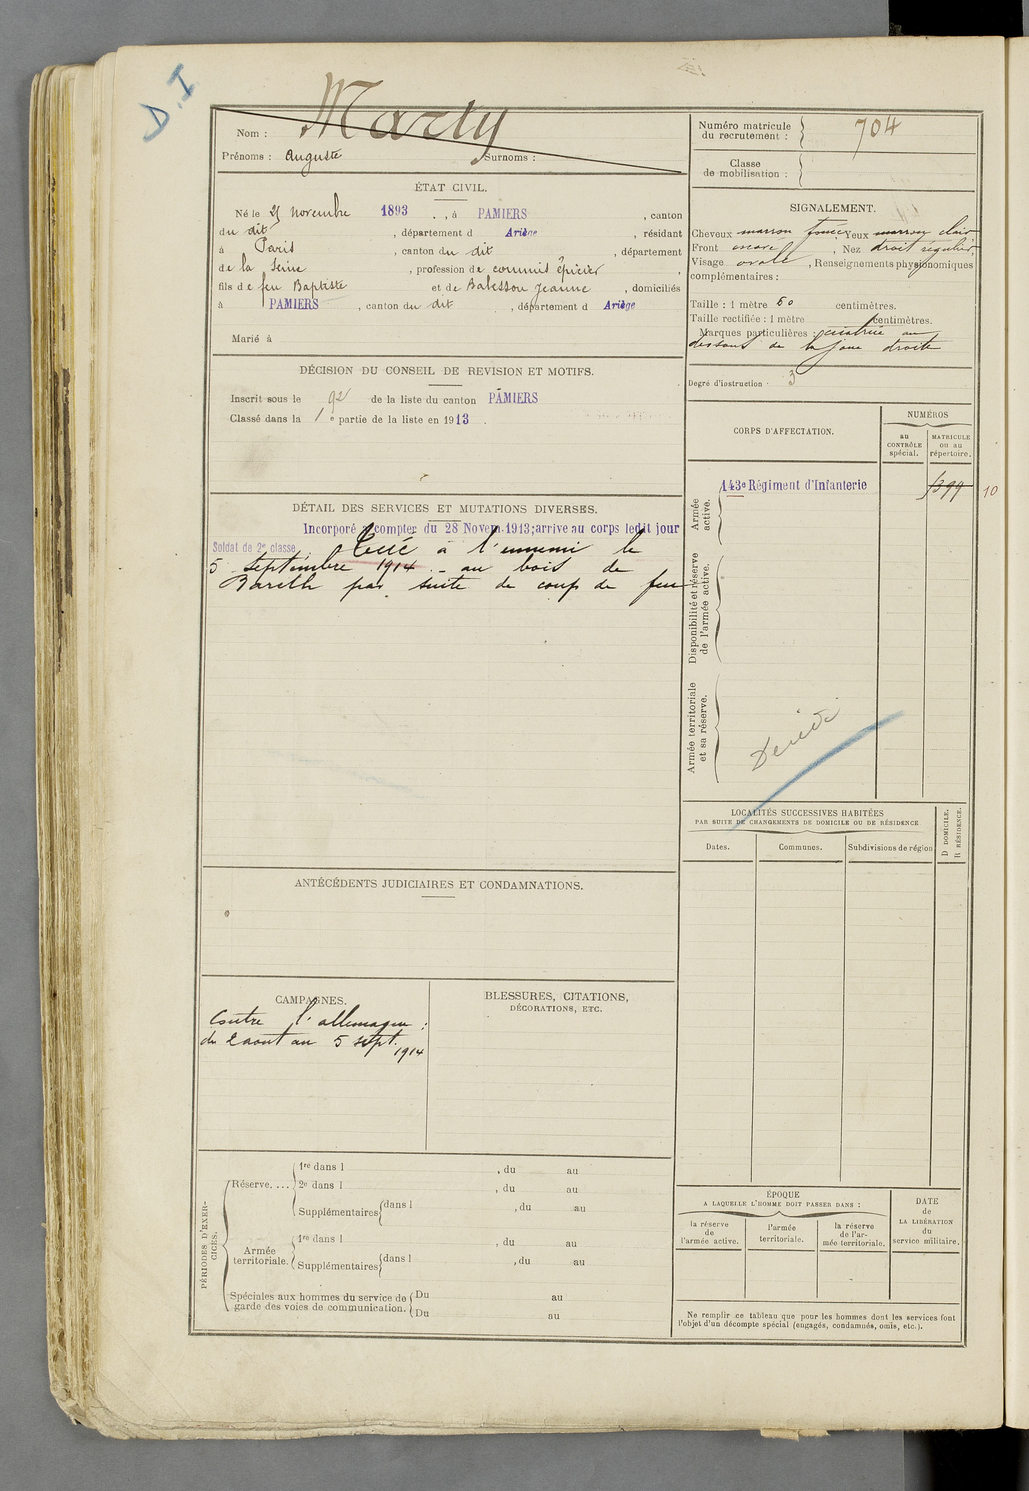 D.I
Nom : Marty
Prénoms : Auguste Surnoms :
Numéro matricule
du recrutement : 704
Classe
de mobilisation :
ÉTAT CIVIL.
Né le 25 novembre 1893, à PAMIERS, canton
du dit, département d Ariège, résidant
à Paris, canton du dit, département
de la Seine, profession de commis épicier,
fils de feu Baptiste et de Balessou Jeanne, domiciliés
à PAMIERS, canton du dit, département d Ariège
Marié à
SIGNALEMENT.
Cheveux marron foncé Yeux marron clair
Front, Nez droit régulier,
Visage ovale, Renseignements physionomiques
complémentaires :
Taille : 1 mètre 60 centimètres.
Taille rectifiée : 1 mètre centimètres.
Marques particulières : cicatrice au
dessous de la joue droite
Degré d'instruction 3
DÉCISION DU CONSEIL DE REVISION ET MOTIFS.
Inscrit sous le 92 de la liste du canton PAMIERS
Classé dans la 1e partie de la liste en 1913.
CORPS D'AFFECTATION.
NUMÉROS
au
CONTRÔLE
spécial.
MATRICULE
ou au
répertoire.
Armée
active.
143e Régiment d'Infanterie
10
Disponibilité et réserve
de l'armée active.
Armée territoriale
et sa réserve.
DÉTAIL DES SERVICES ET MUTATIONS DIVERSES.
Incorporé à compter du 28 Novem. 1913; arrive au corps ledit jour
Soldat de 2e classe. Tué à l'ennemi le
5 septembre 1914 _ au bois de
Bareth par suite de coup de feu
LOCALITÉS SUCCESSIVES HABITÉES
PAR SUITE DE CHANGEMENTS DE DOMICILE OU DE RÉSIDENCE.
Dates.
Communes.
Subdivisions de région
D DOMICILE.
R RÉSIDENCE.
ANTÉCÉDENTS JUDICIAIRES ET CONDAMNATIONS.
CAMPAGNES.
Contre l'allemagne :
du 2 aout au 5 sept.
1914
BLESSURES, CITATIONS,
DÉCORATIONS, ETC.
PÉRIODES D'EXER-
CICES.
Réserve....
1re dans l , du au
2e dans l , du au
Supplémentaires dans l , du au
Armée
territoriale.
1re dans l , du au
Supplémentaires dans l , du au
Spéciales aux hommes du service de
garde des voies de communication.
Du au
Du au
ÉPOQUE
A LAQUELLE L'HOMME DOIT PASSER DANS :
la réserve
de
l'armée active.
l'armée
territoriale.
la réserve
de l'ar-
mée territoriale.
DATE
de
LA LIBÉRATION
du
service militaire.
Ne remplir ce tableau que pour les hommes dont les services font
l'objet d'un décompte spécial (engagés, condamnés, omis, etc.).